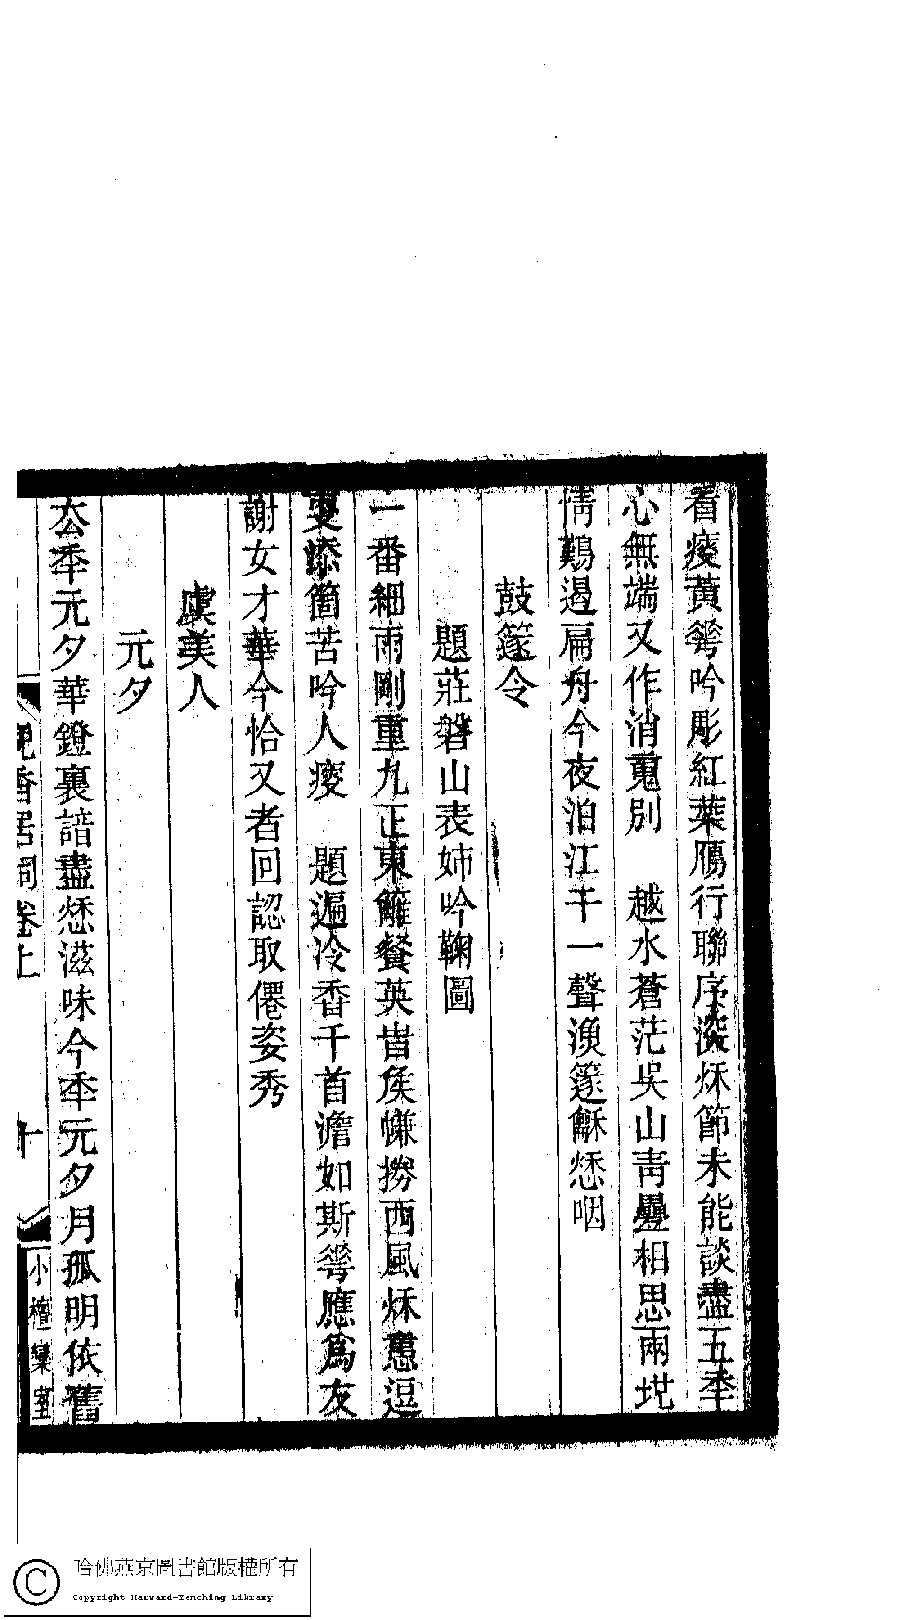 看瘦黃蕚吟彫紅葉鴈行聯序㴱秌節未能談盡五秊
心無端又作消䰟別　越水蒼茫吳山靑疊相思兩地
情鸛遏扁舟今夜泊江干一聲漁篴龢愁咽
鼓篴令
題莊磐山表姊吟鞠圖
一番細雨剛重九正東籬餐英旹矦慵撈西風秌蕙逗
更添箇苦吟人瘦　題遍冷香千首澹如斯蕚應爲友
謝女才華今恰又者回認取僊姿秀
虞美人
元夕
厺秊元夕華鐙裏諳盡愁滋味今秊元夕月孤明依舊
香居詞卷上
十
小檀欒室
哈佛燕京圖書館版權所有
Copyright Harvard-Yenching Library